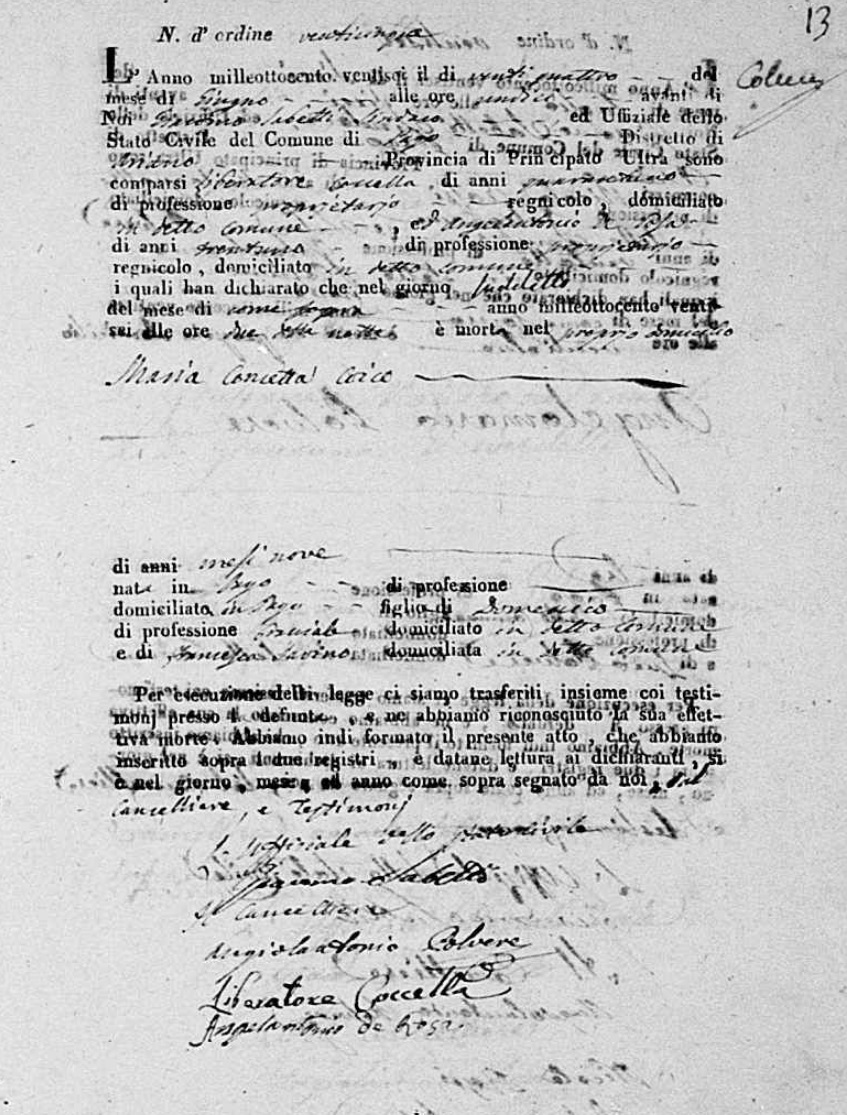 13
N. d' ordine ventinove
L' Anno milleottocento ventisei il di venti quattro del
mese di Giugno alle ore undici avanti di
Noi Giacomo Sabetti Sindaco ed Uffiziale dello
Stato Civile del Comune di Distretto di
Ariano Provincia di Principato Ultra sono
comparsi Liberatore Coccella di anni
di professione proprietario regnicolo, domiciliato
in detto comune, ed Angelantonio de Rosa
di anni trentuno di professione proprietario
regnicolo, domiciliato in detto comune
i quali han dichiarato che nel giorno sudetto
del mese di come sopra anno milleottocento venti-
sei alle ore due della notte è morta nel proprio domicilio
Maria Concetta Coico
di anni mesi nove
nata in di professione
domiciliato in figlia di Domenico
di professione domiciliato in detto comune
e di Francesca Savino domiciliata in detto comune
Per esecuzione della legge ci siamo trasferiti insieme coi testi-
monj presso l defunta, e ne abbiamo riconosciuto la sua effet-
tiva morte. Abbiamo indi formato il presente atto, che abbiamo
inscritto sopra i due registri, e datane lettura ai dichiaranti, si
è nel giorno, mese, ed anno come sopra segnato da noi, dal
Cancelliere, e Testimonj
L' Uffiziale dello stato civile
Giacomo Sabetti
Il Cancelliere
Angiolantonio Polvere
Liberatore Coccella
Angelantonio de Rosa